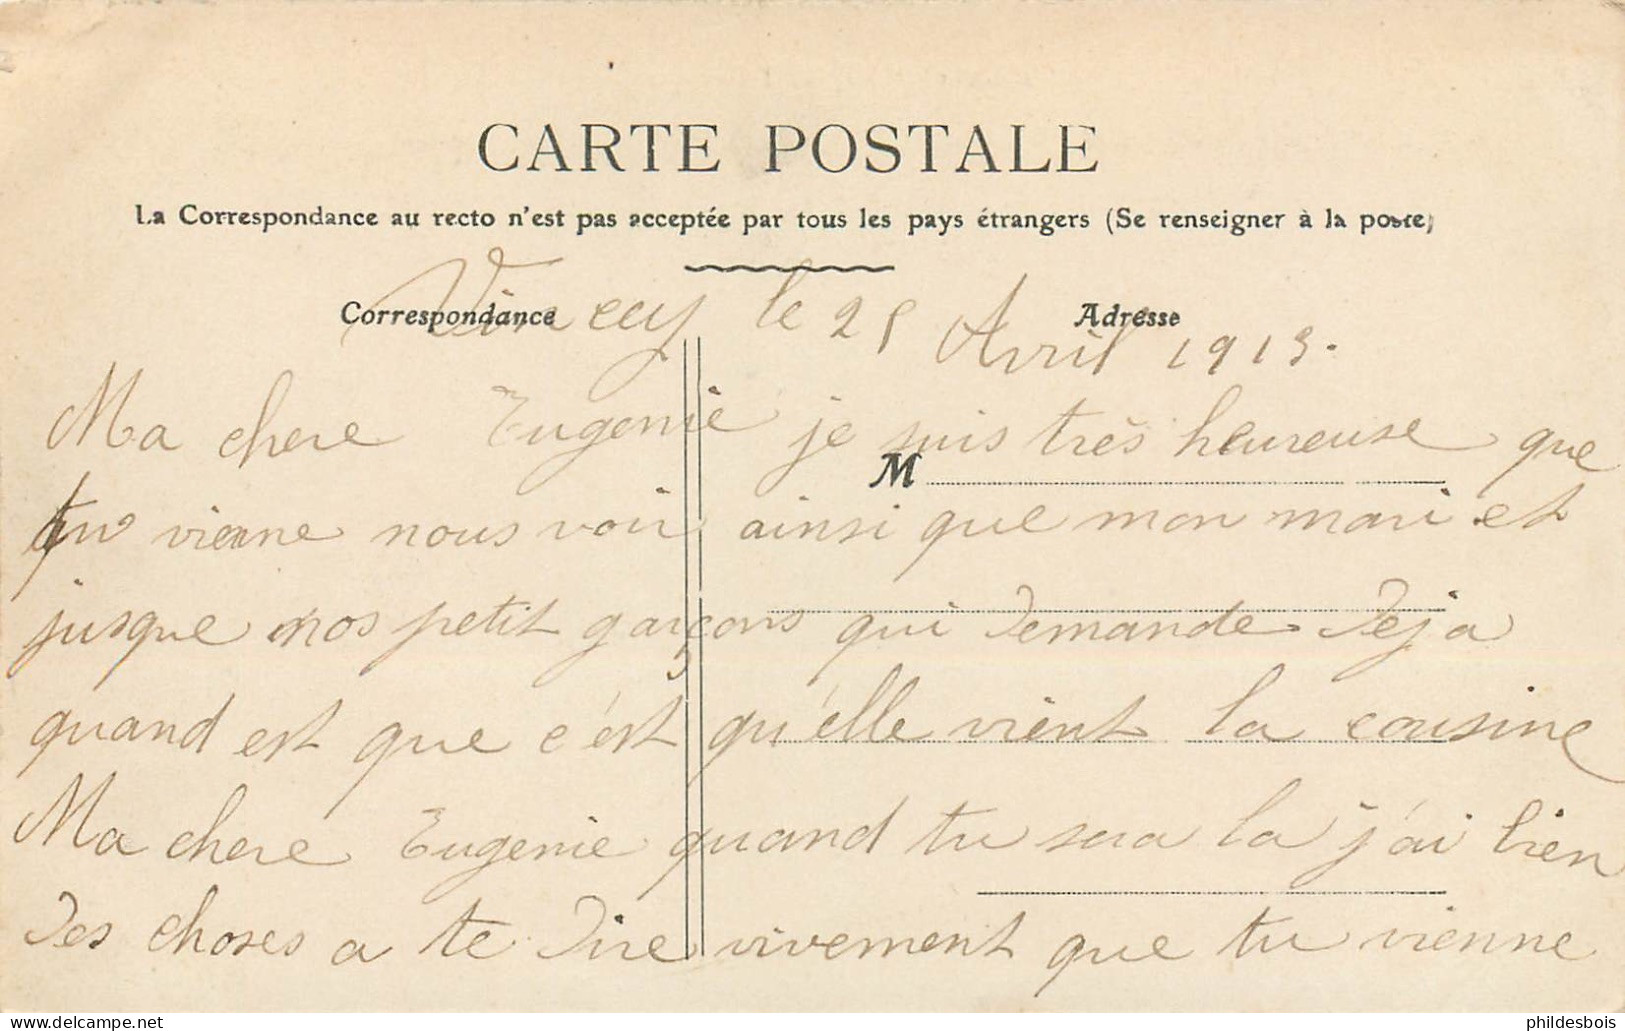 CARTE POSTALE
La Correspondance au recto n'est pas acceptée par tous les pays étrangers (Se renseigner à la poste)
Correspondance
Adresse
le 25 Avril 1913.
Ma chere Eugenie je suis très heureuse que
M
tu vienne nous voir ainsi que mon mari et
jusque nos petit garçons qui demande deja
quand est que c'est qu'elle vient la cousine
Ma chere Eugenie quand tu sera la j'ai bien
des choses a te dire vivement que tu vienne
phildesbois
delcampe.net